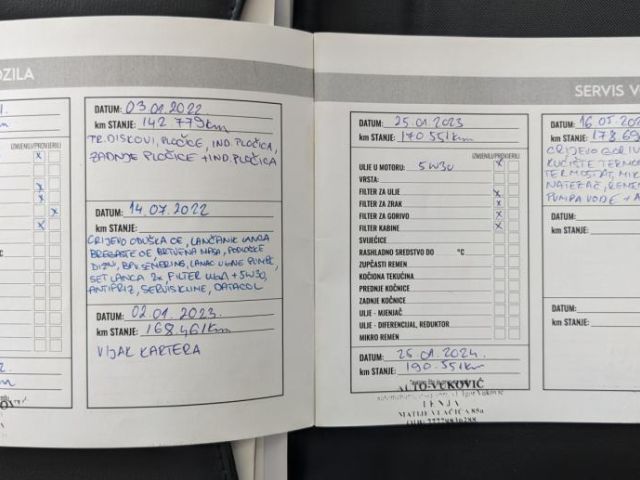 OZILA
DATUM: 03.01.2022
km STANJE: 142 779km
TR. DISKOVI, PLOČICE, IND. PLOČICA,
ZADNJE PLOČICE + IND. PLOČICA
DATUM: 14.07.2022
km STANJE:
CRIJEVO ODUŠKA
LANČANIK LANCA
BREGASTE
BRTVENA MASA, PODLOŠKE
DIZNI,
SEMERING, LANAC ULJNE PUMPE,
SET LANCA 2x FILTER ULJA + 5W30,
ANTIFRIZ, SERVISKLINE, DATACOL
DATUM: 02.01.2023.
km STANJE: 168.461km
VIJAK KARTERA
IZMJENILI/PROVJERILI
SERVIS V
DATUM: 25.01.2023
km STANJE: 170.551km
IZMJENILI/PROVJERILI
ULJE U MOTORU: 5W30 x
VRSTA:
FILTER ZA ULJE x
FILTER ZA ZRAK x
FILTER ZA GORIVO x
FILTER KABINE x
SVJEĆICE
RASHLADNO SREDSTVO DO °C
ZUPČASTI REMEN
KOČIONA TEKUĆINA
PREDNJE KOČNICE
ZADNJE KOČNICE
ULJE - MJENJAČ
ULJE - DIFERENCIJAL, REDUKTOR
MIKRO REMEN
DATUM: 25.01.2024.
km STANJE: 190.551km
AUTO-VUKOVIĆ
Igor Vuković
TENJA
MATIJE VLAČIĆA 88a
DATUM: 16.05.202
km STANJE: 178 6
CRIJEVO GORIV
KUĆIŠTE TERMO
TERMOSTAT, MIK
NATEZAČ, REME
PUMPA VODE + A
DATUM:
km STANJE:
DATUM:
km STANJE: